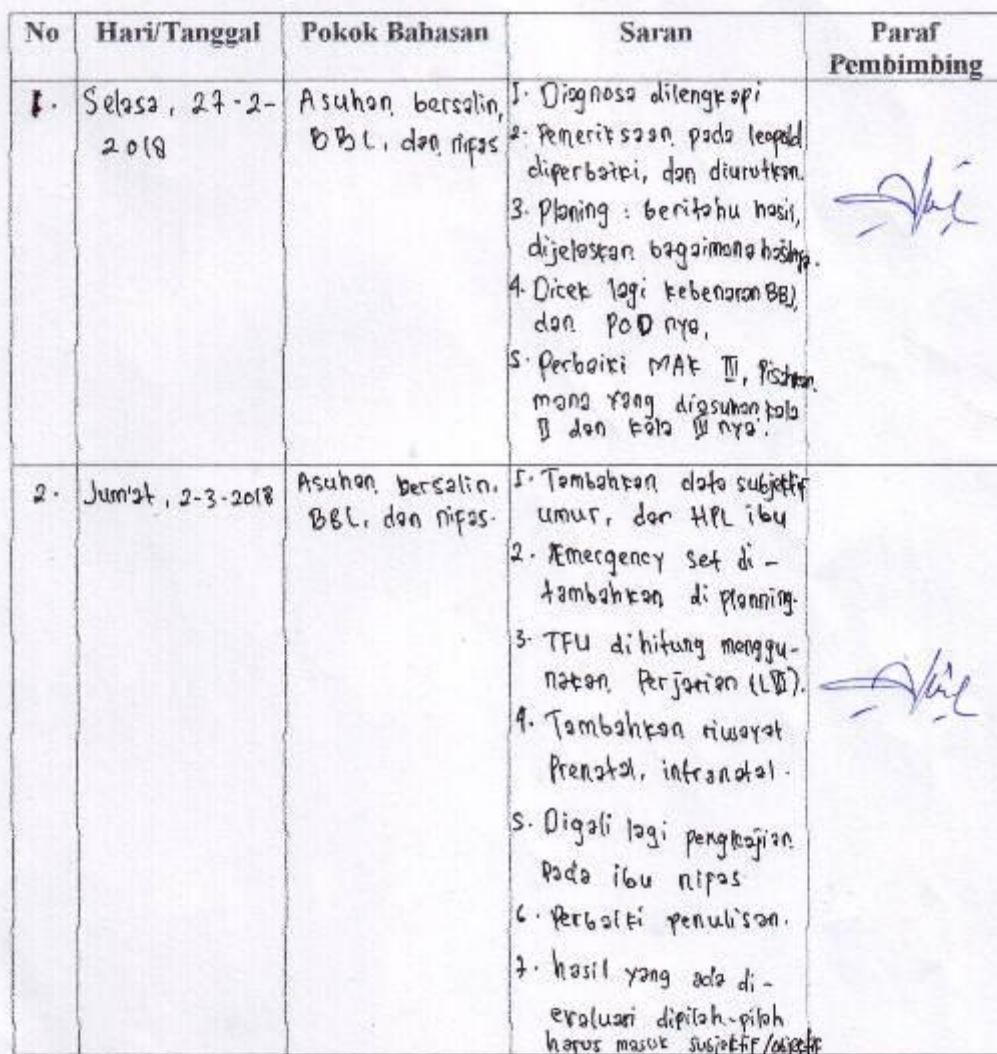 No Hari/Tanggal Pokok Bahasan Saran Paraf Pembimbing
1. Selasa, 27-2-2018
Asuhan bersalin,
BBL, dan nifas
1. Diagnosa dilengkapi
2. Pemeriksaan pada leopold
diperbaiki, dan diurutkan.
3. Planing : beritahu hasil,
dijelaskan bagaimana hasilnya.
4. Dicek lagi kebenaran BBJ,
dan POD nya.
5. Perbaiki MAK III, Pisahkan
mana yang diasuhan kala
II dan kala III nya.
2. Jum'at, 2-3-2018
Asuhan bersalin.
BBL, dan nifas.
1. Tambahkan data subjektif
umur, dan HPL ibu
2. Emergency set di-
tambahkan di planning.
3. TFU dihitung menggu-
nakan Perjarian (LIII).
4. Tambahkan riwayat
Prenatal, intranatal.
5. Digali lagi pengkajian
pada ibu nifas
6. Perbaiki penulisan.
7. hasil yang ada di-
evaluasi dipilah-pilah
harus masuk subjektif/objektif